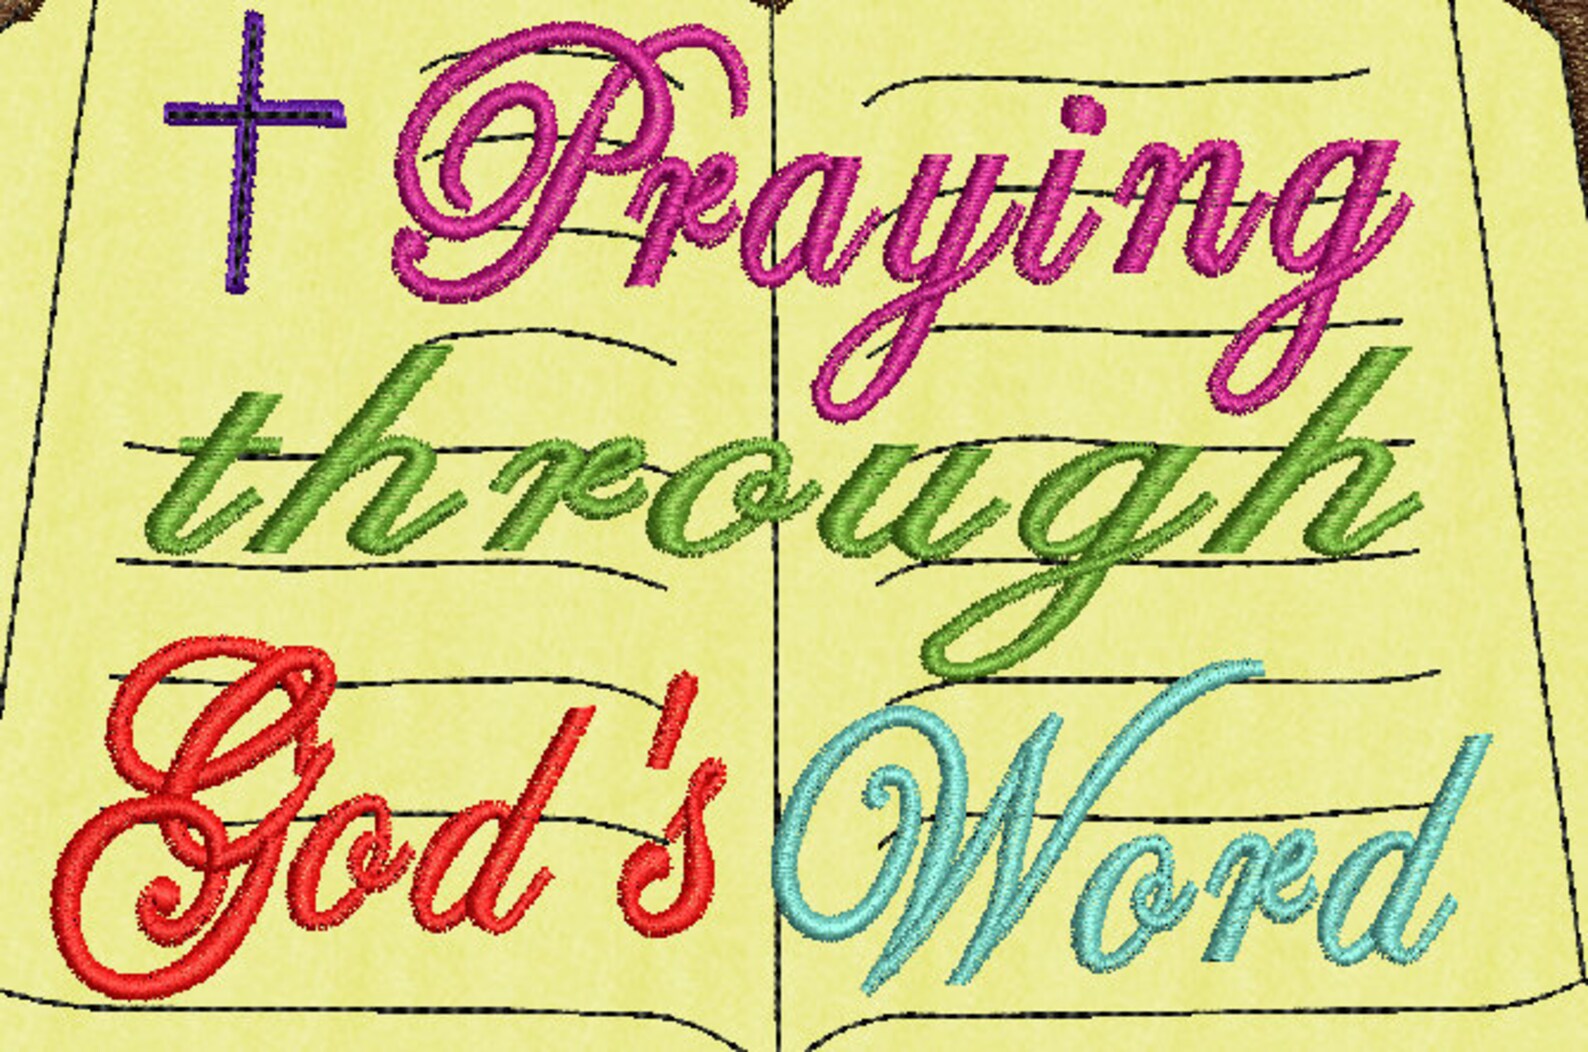 Praying
through
God's Word